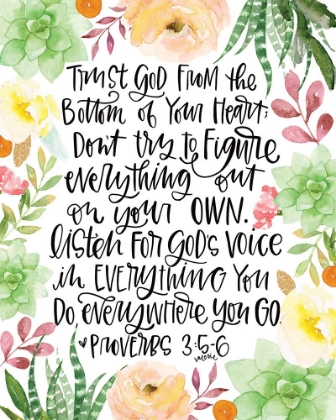 Trust God From the
Bottom of Your Heart;
Don't try to Figure
everything out
on your OWN.
listen For God's Voice
in EVERYTHING You
Do everywhere You GO.
♥ Proverbs 3:5-6
valerie